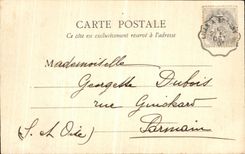 CARTE POSTALE
Ce côté est exclusivement réservé à l'adresse
Mademoiselle
Georgette Dubois
rue Guichard
Parmain
(S. et Oise)